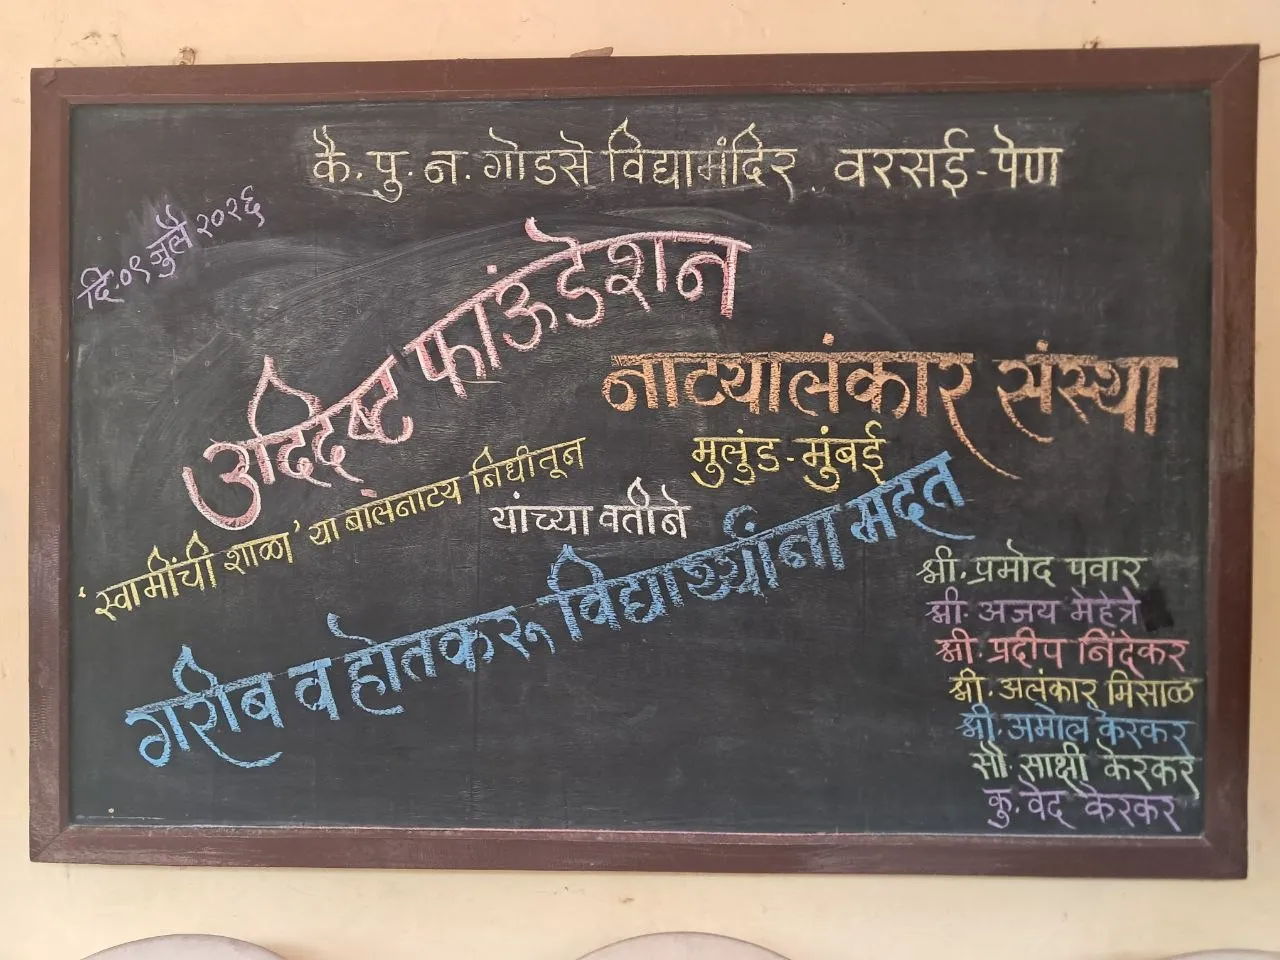 कै. पु. न. गोडसे विद्यामंदिर वरसई-पेण
दि:०९ जुलै २०२६
उद्दिष्ट फाऊंडेशन
नाट्यालंकार संस्था
मुलुंड-मुंबई
'स्वामींची शाळा' या बालनाट्य निधीतून
यांच्या वतीने
गरीब व होतकरू विद्यार्थ्यांना मदत
श्री. प्रमोद पवार
श्री. अजय मेहेत्रे
श्री. प्रदीप निंदेकर
श्री. अलंकार मिसाळ
श्री. अमोल केरकर
सौ. साक्षी केरकर
कु. वेद केरकर